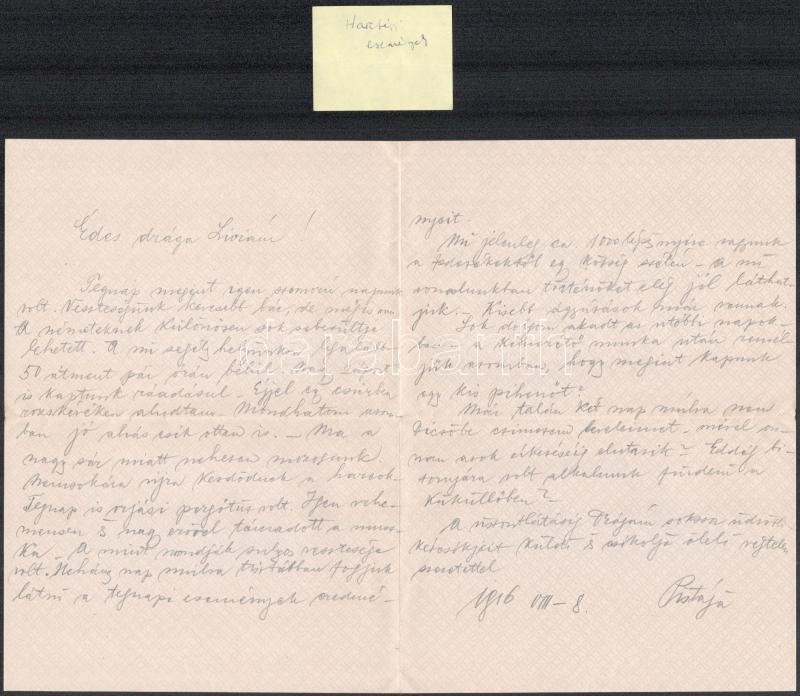 Harctéri
események
Édes drága Liviám!
Tegnap megint igen szomorú napunk
volt. Veszteségünk kevesebb bár, de mégis van
A németeknek különösen sok sebesültje
lehetett. A mi segély helyünkön
50 átment pár órán belül.
is kaptunk ráadásul. - Éjjel egy csűrben
aludtam. Mondhatom
ban jó alvás esik ottan is. - Ma a
nagy sár miatt nehezen mozogunk
Nemsokára újra kezdődnek a harcok.
Tegnap is óriási pergőtűz volt. Igen vehe-
mensen és nagy erővel támadott a musz-
ka. A mint mondják súlyos vesztesége
volt. Néhány nap mulva tisztábban fogjuk
látni a tegnapi események eredmé-
nyeit.
Mi jelenleg ca. 1000 lépésnyire vagyunk
a fedezékektől egy község szélén - a mi
vonalunkban történőket elég jól láthat-
juk. - Kisebb ágyúzások már vannak.
Sok dolgom akadt az utóbbi napok-
ban, a kimerítő munka után remél-
jük azonban, hogy megint kapunk
egy kis pihenőt?
Már talán két nap mulva nem
címezem leveleimet, mivel on-
nan azok elutasik? Eddig bi-
zonyára volt alkalmunk fürdeni a
Küküllőben?
A viszontlátásig Drágám sokszor üdvözli
kézcsókjait küldi és csókolja ölelő végtelen
szeretettel
1916 VIII - 8. Pistája
darabanth